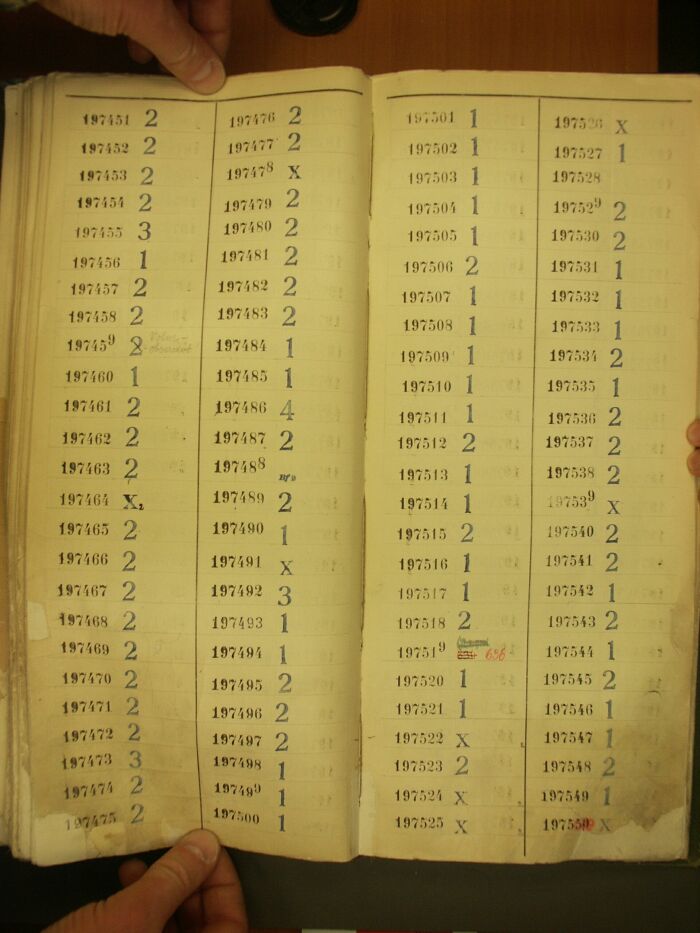 197451 2
197452 2
197453 2
197454 2
197455 3
197456 1
197457 2
197458 2
197459 2
197460 1
197461 2
197462 2
197463 2
197464 X2
197465 2
197466 2
197467 2
197468 2
197469 2
197470 2
197471 2
197472 2
197473 3
197474 2
197475 2
197476 2
197477 2
197478 X
197479 2
197480 2
197481 2
197482 2
197483 2
197484 1
197485 1
197486 4
197487 2
197488
197489 2
197490 1
197491 X
197492 3
197493 1
197494 1
197495 2
197496 2
197497 2
197498 1
197499 1
197500 1
197501 1
197502 1
197503 1
197504 1
197505 1
197506 2
197507 1
197508 1
197509 1
197510 1
197511 1
197512 2
197513 1
197514 1
197515 2
197516 1
197517 1
197518 2
197519 636
197520 1
197521 1
197522 X
197523 2
197524 X
197525 X
197526 X
197527 1
197528
197529 2
197530 2
197531 1
197532 1
197533 1
197534 2
197535 1
197536 2
197537 2
197538 2
197539 X
197540 2
197541 2
197542 1
197543 2
197544 1
197545 2
197546 1
197547 1
197548 2
197549 1
197550 X